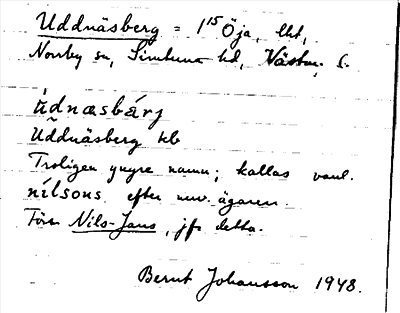 Uddnäsberg = 1¹⁵ Öja, lht,
Norrby sn, Simtuna hd, Västm. l.
ùdnæsbárj
Uddnäsberg hb
Troligen yngre namn; kallas vanl.
nílsons efter nuv. ägaren.
Förr Nils-Jans, jfr detta.
Bernt Johansson 1948.